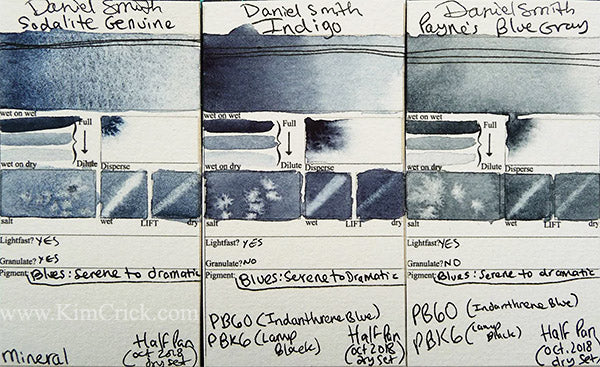 Daniel Smith
Sodalite Genuine
wet on wet
Full
Dilute
wet on dry
Disperse
salt
wet
LIFT
dry
Lightfast? YES
Granulate? YES
Pigment: Blues: Serene to dramatic
www.KimCrick.com
Mineral
Half Pan
(Oct 2018
dry set)
Daniel Smith
Indigo
wet on wet
Full
Dilute
wet on dry
Disperse
salt
wet
LIFT
dry
Lightfast? YES
Granulate? NO
Pigment: Blues: Serene to Dramatic
PB60 (Indanthrene Blue)
PBK6 (Lamp
Black)
Half Pan
(Oct. 2018
dry set)
Daniel Smith
Payne's Blue Gray
wet on wet
Full
Dilute
wet on dry
Disperse
salt
wet
LIFT
dry
Lightfast? YES
Granulate? NO
Pigment: Blues: Serene to dramatic
PB60 (Indanthrene Blue)
PBK6 (Lamp
Black)
Half Pan
(Oct. 2018
dry set)